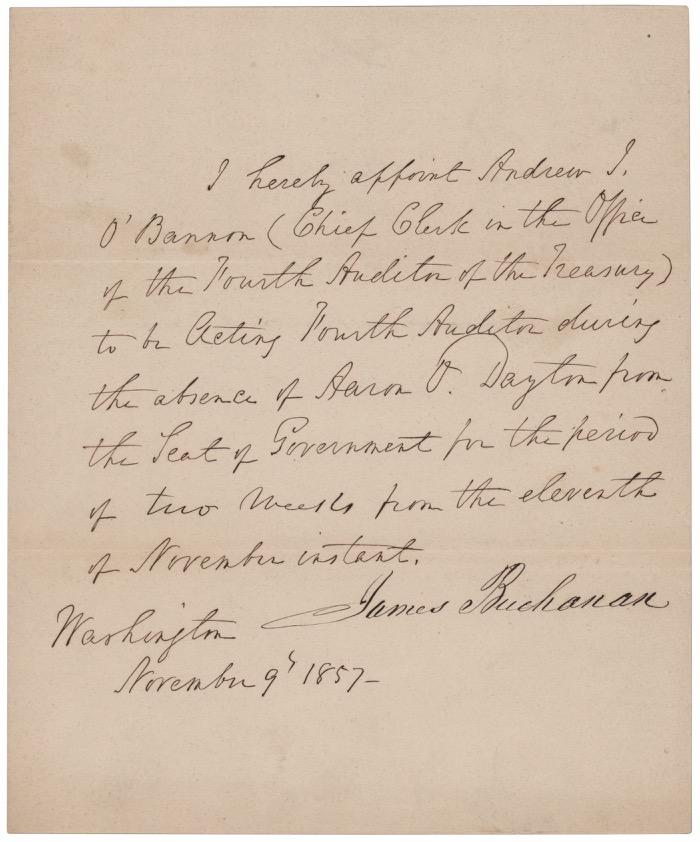 I hereby appoint Andrew J.
O'Bannon (Chief Clerk in the Office
of the Fourth Auditor of the Treasury)
to be Acting Fourth Auditor during
the absence of Aaron O. Dayton from
the Seat of Government for the period
of two weeks from the eleventh
of November instant.
James Buchanan
Washington
November 9th 1857–